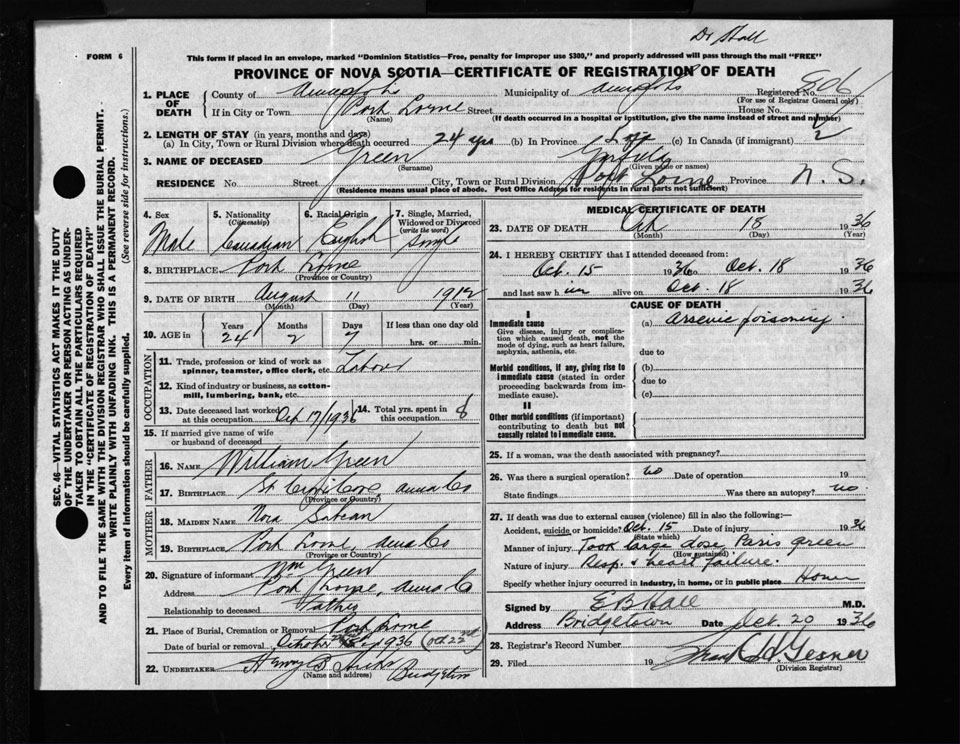 Dr Hall
FORM 6
This form if placed in an envelope, marked "Dominion Statistics—Free, penalty for improper use $300," and properly addressed will pass through the mail "FREE"
PROVINCE OF NOVA SCOTIA—CERTIFICATE OF REGISTRATION OF DEATH
1. PLACE OF DEATH County of Annapolis Municipality of Annapolis Registered No. 806
(For use of Registrar General only)
If in City or Town Port Lorne Street House No.
(Name) (If death occurred in a hospital or institution, give the name instead of street and number)
2. LENGTH OF STAY (in years, months and days)
(a) In City, Town or Rural Division where death occurred 24 yrs (b) In Province Life (c) In Canada (if immigrant)
3. NAME OF DECEASED Green Garfield
(Surname) (Given name or names)
RESIDENCE No. Street City, Town or Rural Division Port Lorne Province N. S.
(Residence means usual place of abode. Post Office Address for residents in rural parts not sufficient)
SEC. 46—VITAL STATISTICS ACT MAKES IT THE DUTY
OF THE UNDERTAKER OR PERSON ACTING AS UNDER-
TAKER TO OBTAIN ALL THE PARTICULARS REQUIRED
IN THE "CERTIFICATE OF REGISTRATION OF DEATH"
AND TO FILE THE SAME WITH THE DIVISION REGISTRAR WHO SHALL ISSUE THE BURIAL PERMIT.
WRITE PLAINLY WITH UNFADING INK. THIS IS A PERMANENT RECORD.
Every item of information should be carefully supplied. (See reverse side for instructions.)
4. Sex 5. Nationality 6. Racial Origin 7. Single, Married,
(Citizenship) Widowed or Divorced
(write the word)
Male Canadian English Single
8. BIRTHPLACE Port Lorne
(Province or Country)
9. DATE OF BIRTH August 11 1912
(Month) (Day) (Year)
10. AGE in Years Months Days If less than one day old
24 2 7 hrs. or min.
OCCUPATION
11. Trade, profession or kind of work as
spinner, teamster, office clerk, etc. Labour
12. Kind of industry or business, as cotton-
mill, lumbering, bank, etc.
13. Date deceased last worked
at this occupation Oct 17/1936 14. Total yrs. spent in
this occupation 8
15. If married give name of wife
or husband of deceased
FATHER
16. NAME William Green
17. BIRTHPLACE Anna Co
(Province or Country)
MOTHER
18. MAIDEN NAME Nora
19. BIRTHPLACE Port Lorne, Anna Co
(Province or Country)
20. Signature of informant Wm Green
Address Port Lorne, Anna Co
Relationship to deceased Father
21. Place of Burial, Cremation or Removal Port Lorne
Date of burial or removal October 1936 (Oct 22nd)
22. UNDERTAKER Henry B Hicks Bridgetown
(Name and address)
MEDICAL CERTIFICATE OF DEATH
23. DATE OF DEATH Oct 18 1936
(Month) (Day) (Year)
24. I HEREBY CERTIFY that I attended deceased from:
Oct. 15 1936 to Oct. 18 1936
and last saw him alive on Oct. 18 1936
CAUSE OF DEATH
I
Immediate cause (a) Arsenic poisoning.
Give disease, injury or complica-
tion which caused death, not the
mode of dying, such as heart failure,
asphyxia, asthenia, etc.
due to
Morbid conditions, if any, giving rise to (b)
immediate cause (stated in order due to
proceeding backwards from im- (c)
mediate cause).
II
Other morbid conditions (if important)
contributing to death but not
causally related to immediate cause.
25. If a woman, was the death associated with pregnancy?
26. Was there a surgical operation? no Date of operation 19
State findings Was there an autopsy? no.
27. If death was due to external causes (violence) fill in also the following:—
Accident, suicide or homicide? Oct. 15 Date of injury 1936
(State which)
Manner of injury Took large dose Paris green
(How sustained)
Nature of injury Resp. & heart failure.
Specify whether injury occurred in industry, in home, or in public place Home
Signed by E B Hall M.D.
Address Bridgetown Date Oct. 20 1936
28. Registrar's Record Number
29. Filed 19 Gesner
(Division Registrar)